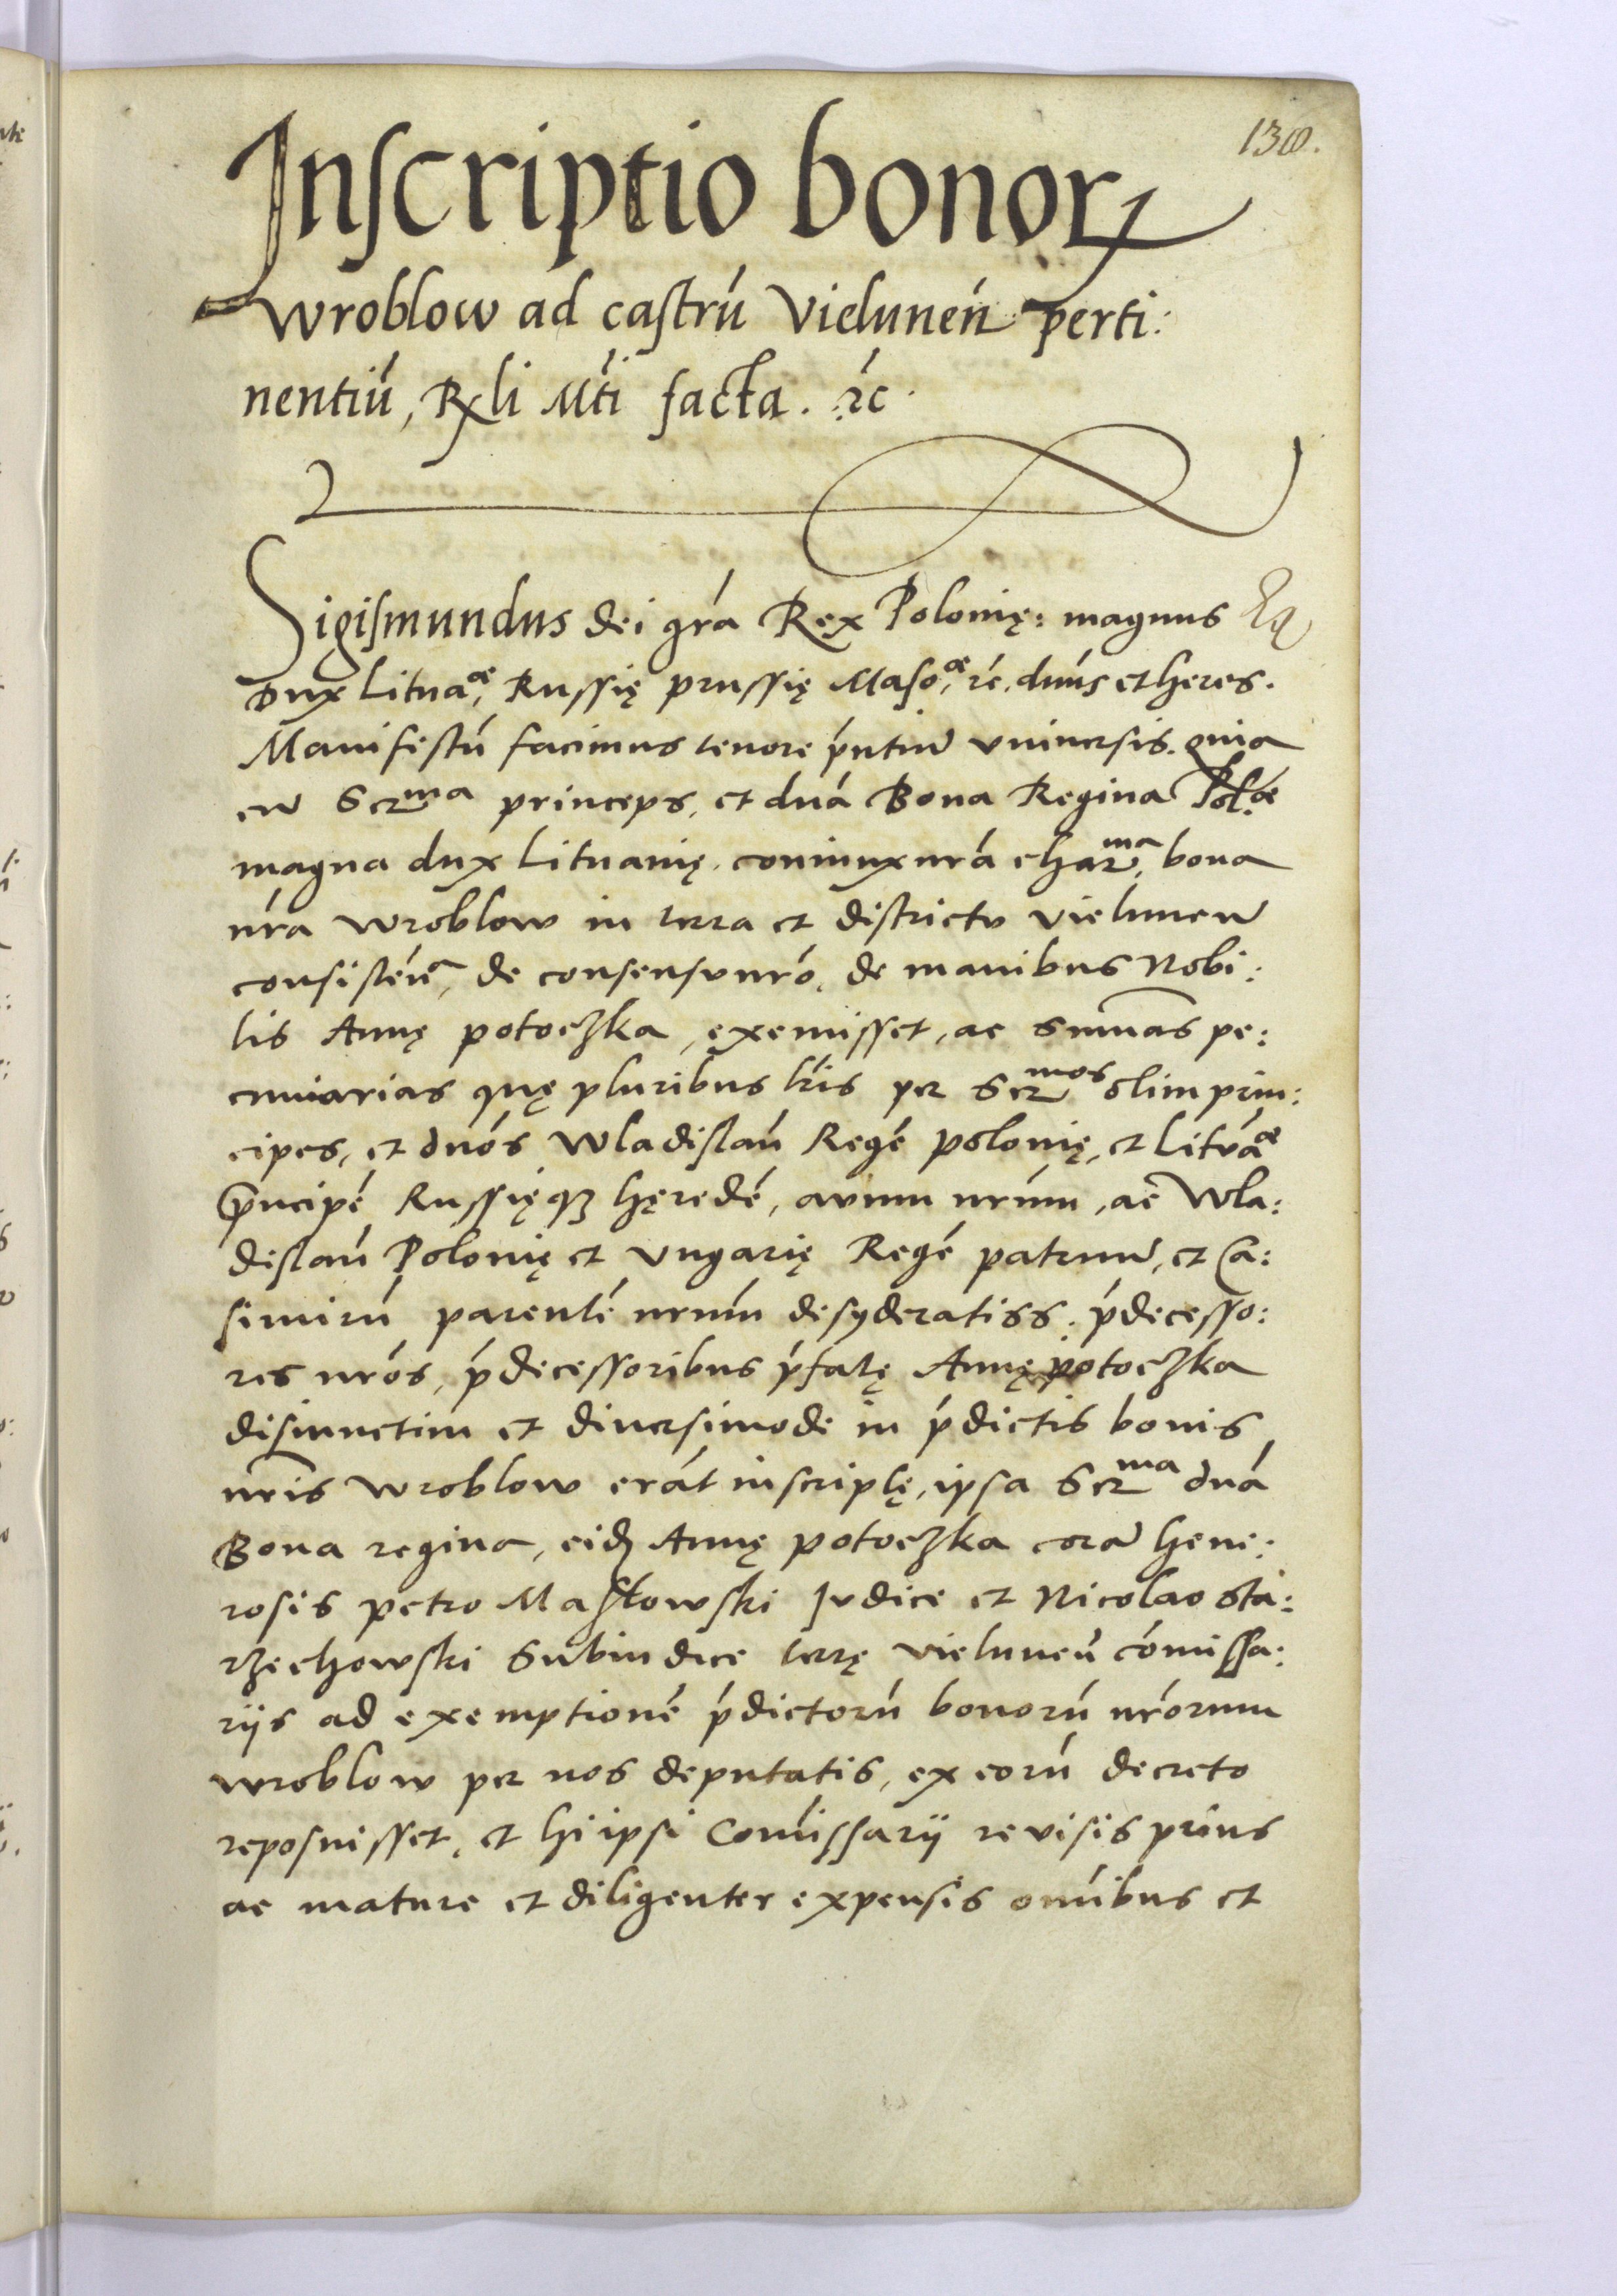 130.
Inscriptio bonorꝝ
Wroblow ad castrú Vielunén perti:
nentiú, Rxli Mti facta. ꝛc.
Sigismundus dei grá Rex Polonię: magnus
Dux Lituaæ, Russię prussię Masoæ, ꝛc. dnús et heres.
Manifestú facimus tenore pńtiũ vniuersis. quia
cũ Serma princeps, et dná Bona Regina Polæ
magna dux Lituanię. coniunx nrá charma, bona
nrá wroblow in terra et districtu vielunen̄
consistén̄, de consensu nró, de manibus Nobi:
lis Annę potoczka, exemisset, ac summas pe:
cuniarias quę pluribus lris per Sermos olim prin:
cipes, et dnós Wladislaú Regé polonię, et Lituáæ
principé Russięqꝫ hęredé, auum nrúm, ac Wla:
dislaú Polonię et vngarię Regé patruũ, et Ca:
simirú parenté nrúm desyderatiss: ṕdecesso:
res nrós, ṕdecessoribus ṕfatę Annę potoczka
disiunctim et diuersimode in ṕdictis bonis
nris wroblow erát inscriptę, ipsa Serma dná
Bona regina, eidꝫ Annę potoczka corã Gene:
rosis petro Masłowski Judice et Nicolao sta:
rzechowski Subiudice terrę vielunen̄ cómissa:
rijs ad exemptioné ṕdictorú bonorú nrórum
wroblow per nos deputatis, ex eorú decreto
reposuisset, et hi ipsi Comissarij reuisis prius
ac mature et diligenter expensis omíbus et